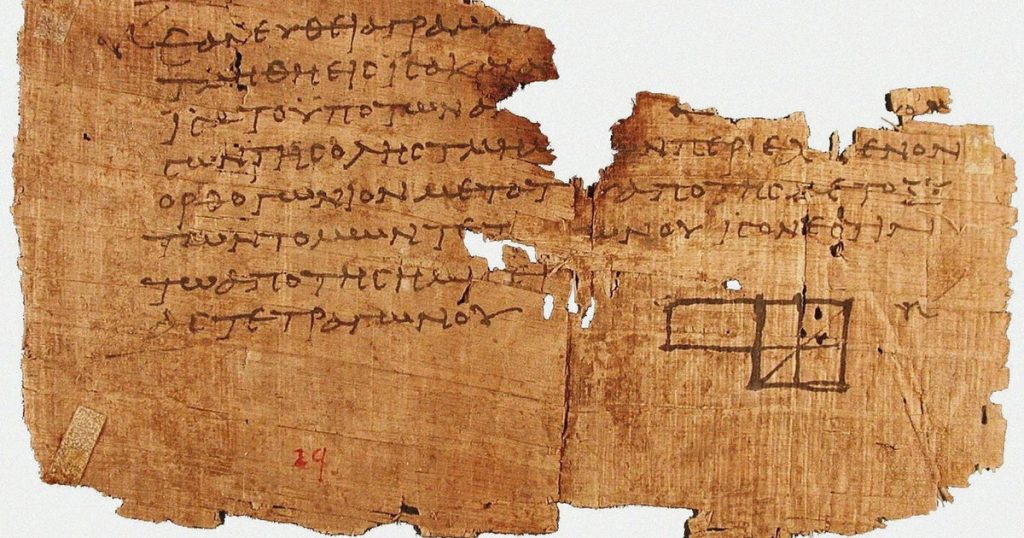 ΕΑΝΕΥΘΕΙΑΓΡΑΜΜ
ΤΜΗΘΗΕΙϹΙϹΑΚΑΙ
ΙϹΑΤΟΥΠΟΤΩΝΑ
ϹΩΝΤΗϹΟΛΗϹΤΜΗΜ ΩΝΠΕΡΙΕΧ ΜΕΝΟΝ
ΟΡΘΟΓΩΝΙΟΝΜΕΤΟΤ ΑΠΟΤΗϹΜΕΤΟΞΥ
ΤΩΝΤΟΜΩΝΤΕΤ ΩΝΟΥΙϹΟΝΕϹΤΙΝ
ΤΩΑΠΟΤΗϹΗΜΙϹΕΙ
ΑϹΤΕΤΡΑΓΩΝΟΥ